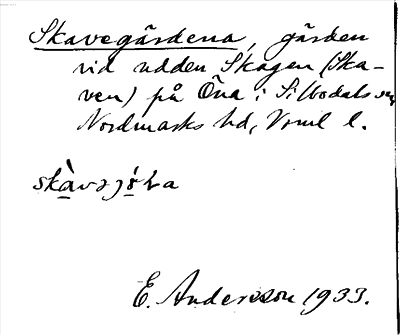 Skavegårdena, gården
vid udden Skagen (Ska-
ven) på Öna i Silbodals sn,
Nordmarks hd, Vrml l.
E. Andersson 1933.